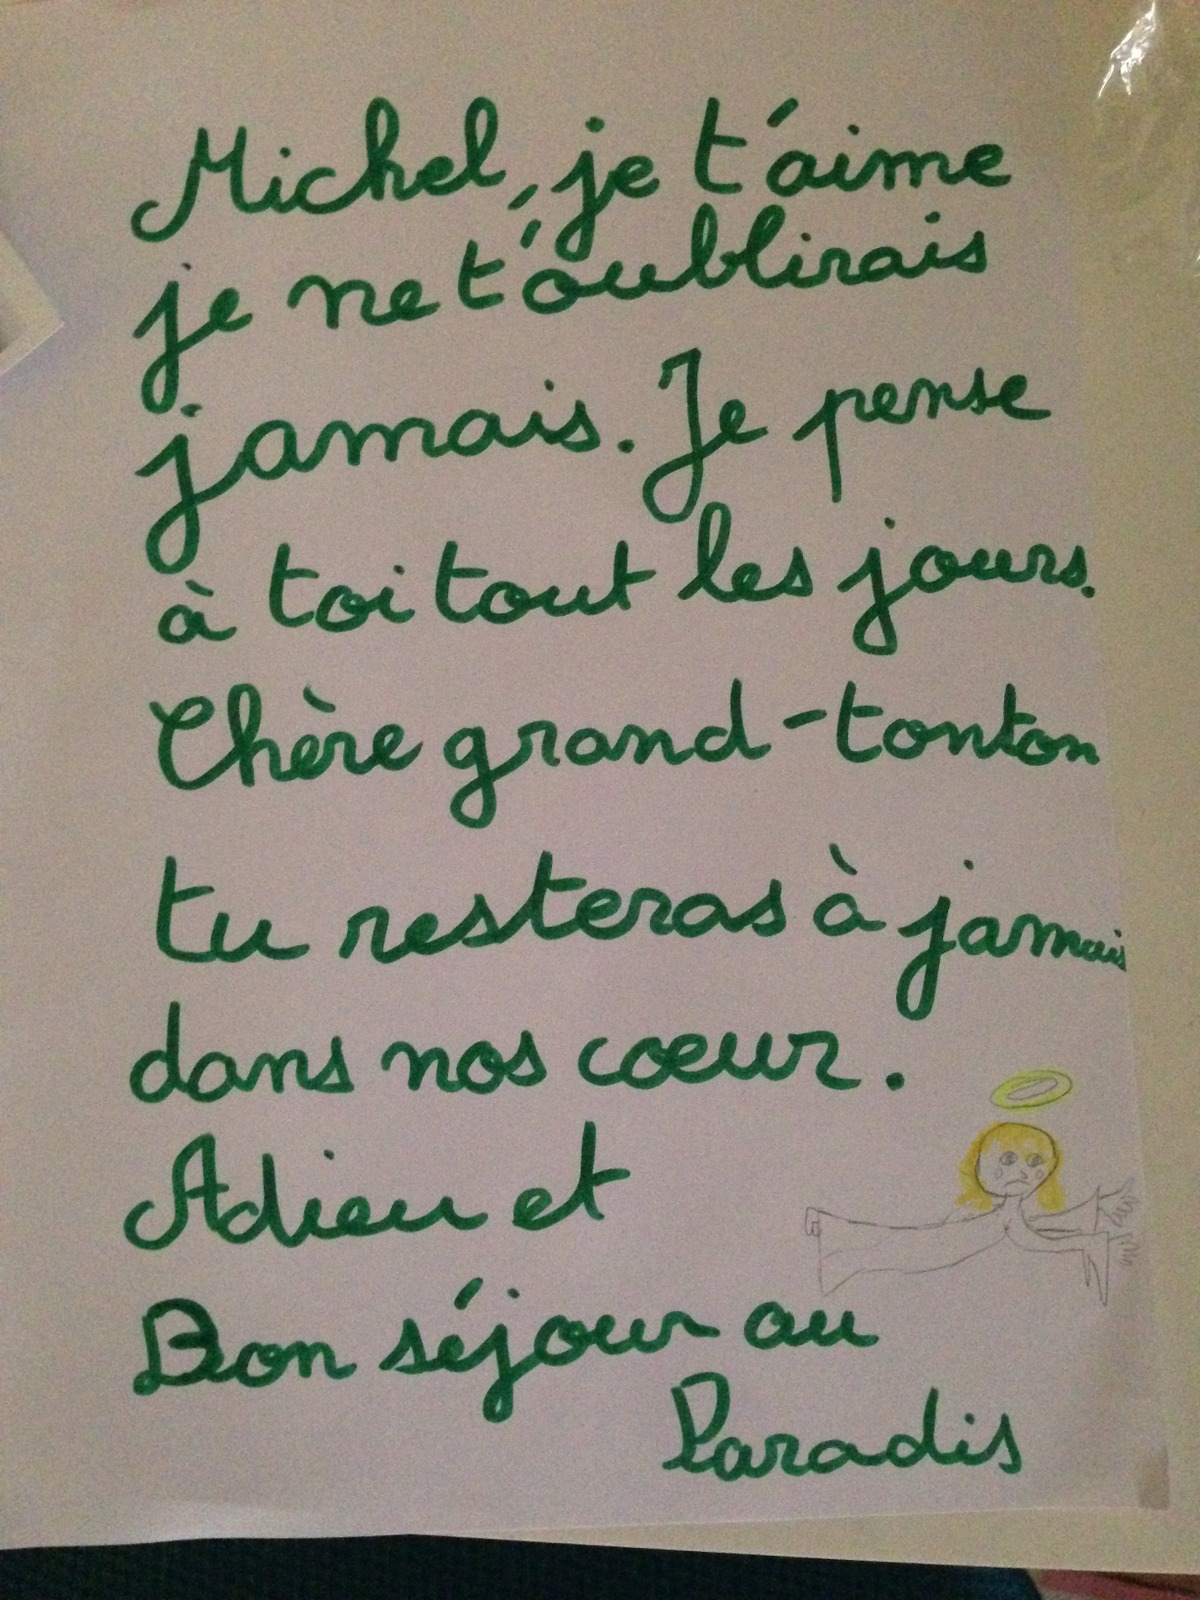 Michel, je t'aime
je ne t'oublirais
jamais. Je pense
à toi tout les jours.
Chère grand-tonton
tu resteras à jamais
dans nos cœur.
Adieu et
Bon séjour au
Paradis